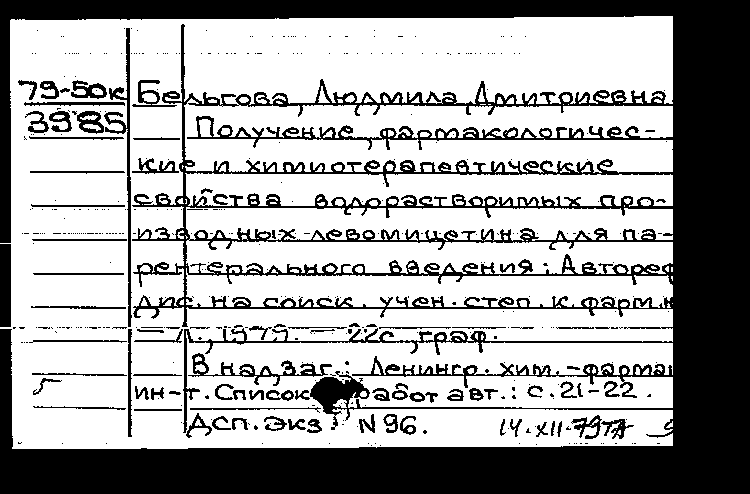 79-50к Бельгова, Людмила Дмитриевна
3985 Получение, фармакологичес-
кие и химиотерапевтические
свойства водорастворимых про-
изводных левомицетина для па-
рентерального введения: Автореф
дис. на соиск. учен. степ. к. фарм. н
— Л., 1979. — 22с., граф.
В надзаг.: Ленингр. хим.-фарма
5 ин-т. Список работ авт.: с. 21-22.
ДСП. Экз. N 96. 14.XII.79